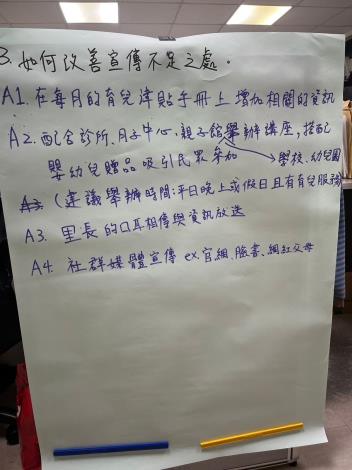 3. 如何改善宣傳不足之處。
A1. 在每月的育兒津貼手冊上增加相關的資訊
A2. 配合診所、月子中心、親子館舉辦講座，搭配
嬰幼兒贈品吸引民眾參加
學校、幼兒園
(建議舉辦時間:平日晚上或假日且有育兒服務
A3. 里長的口耳相傳與資訊放送
A4. 社群媒體宣傳 ex.官網、臉書、網紅父母